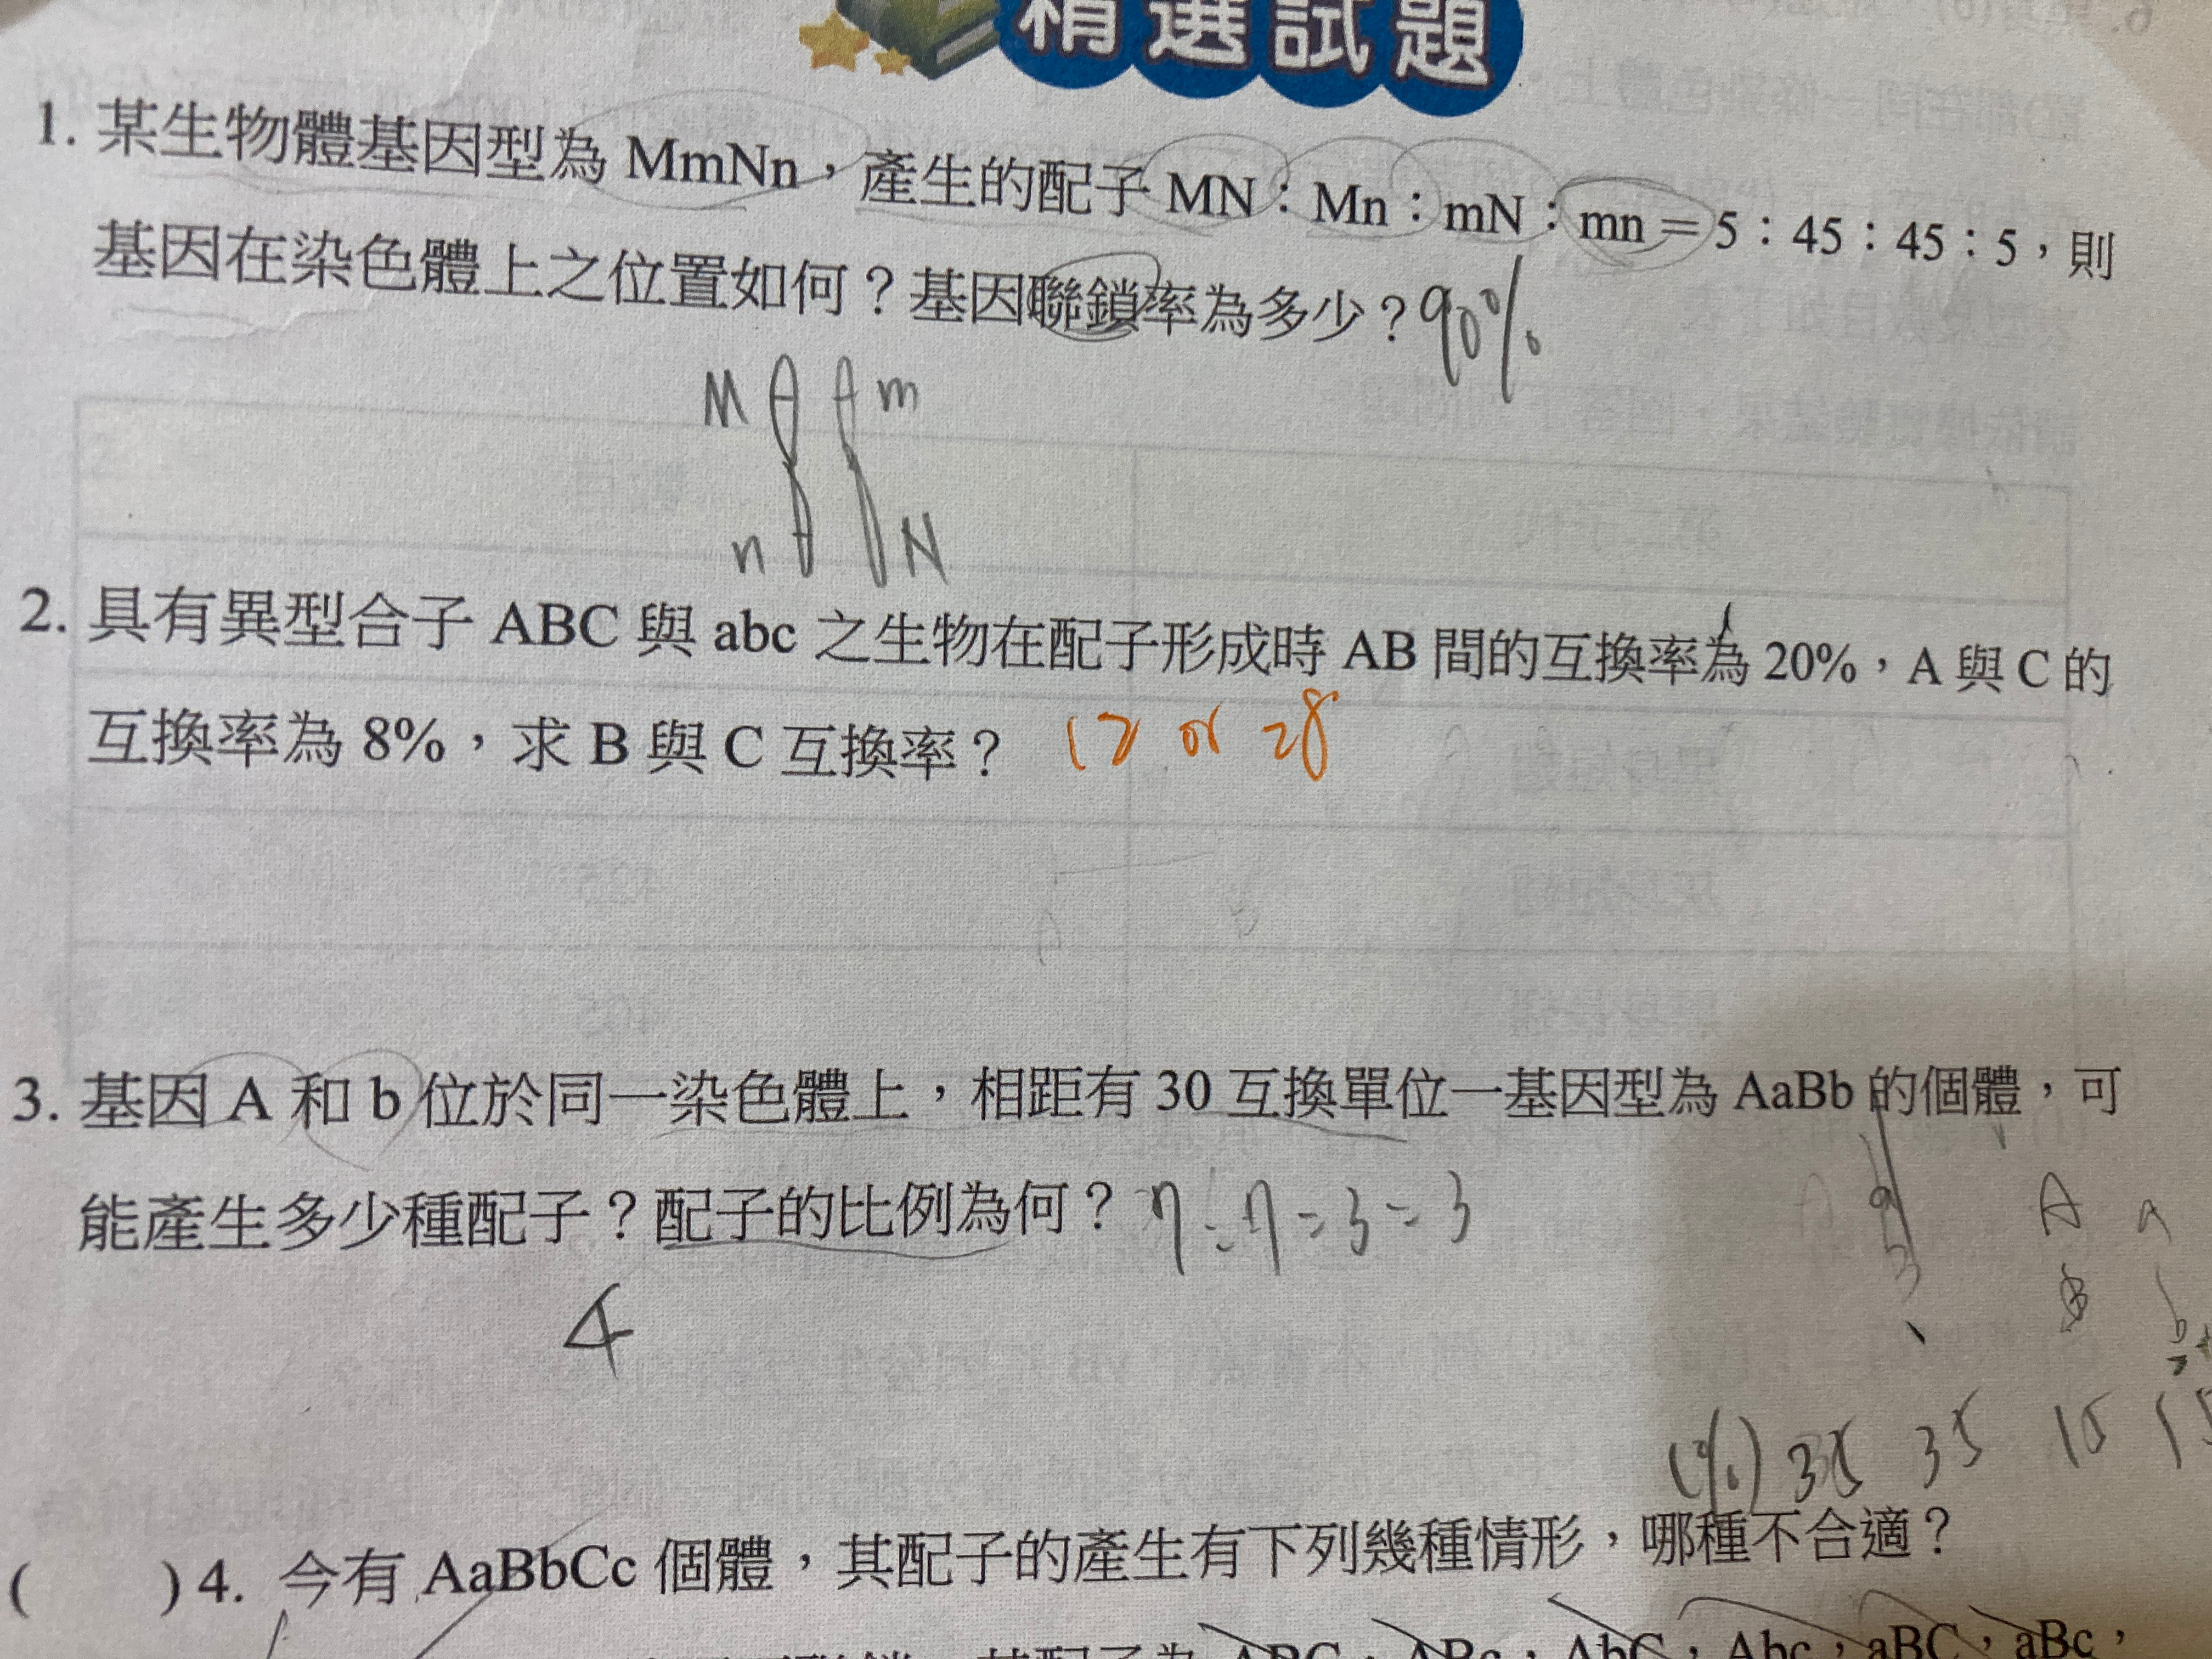 精選試題
1. 某生物體基因型為 MmNn，產生的配子 MN：Mn：mN：mn = 5：45：45：5，則
基因在染色體上之位置如何？基因聯鎖率為多少？90%
M m
n N
2. 具有異型合子 ABC 與 abc 之生物在配子形成時 AB 間的互換率為 20%，A 與 C 的
互換率為 8%，求 B 與 C 互換率？ 12 or 28
3. 基因 A 和 b 位於同一染色體上，相距有 30 互換單位一基因型為 AaBb 的個體，可
能產生多少種配子？配子的比例為何？ 7:7=3=3
A a
B b
4
(%) 35 35 15 15
( ) 4. 今有 AaBbCc 個體，其配子的產生有下列幾種情形，哪種不合適？
其配子為 ABC，ABc，AbC，Abc，aBC，aBc，